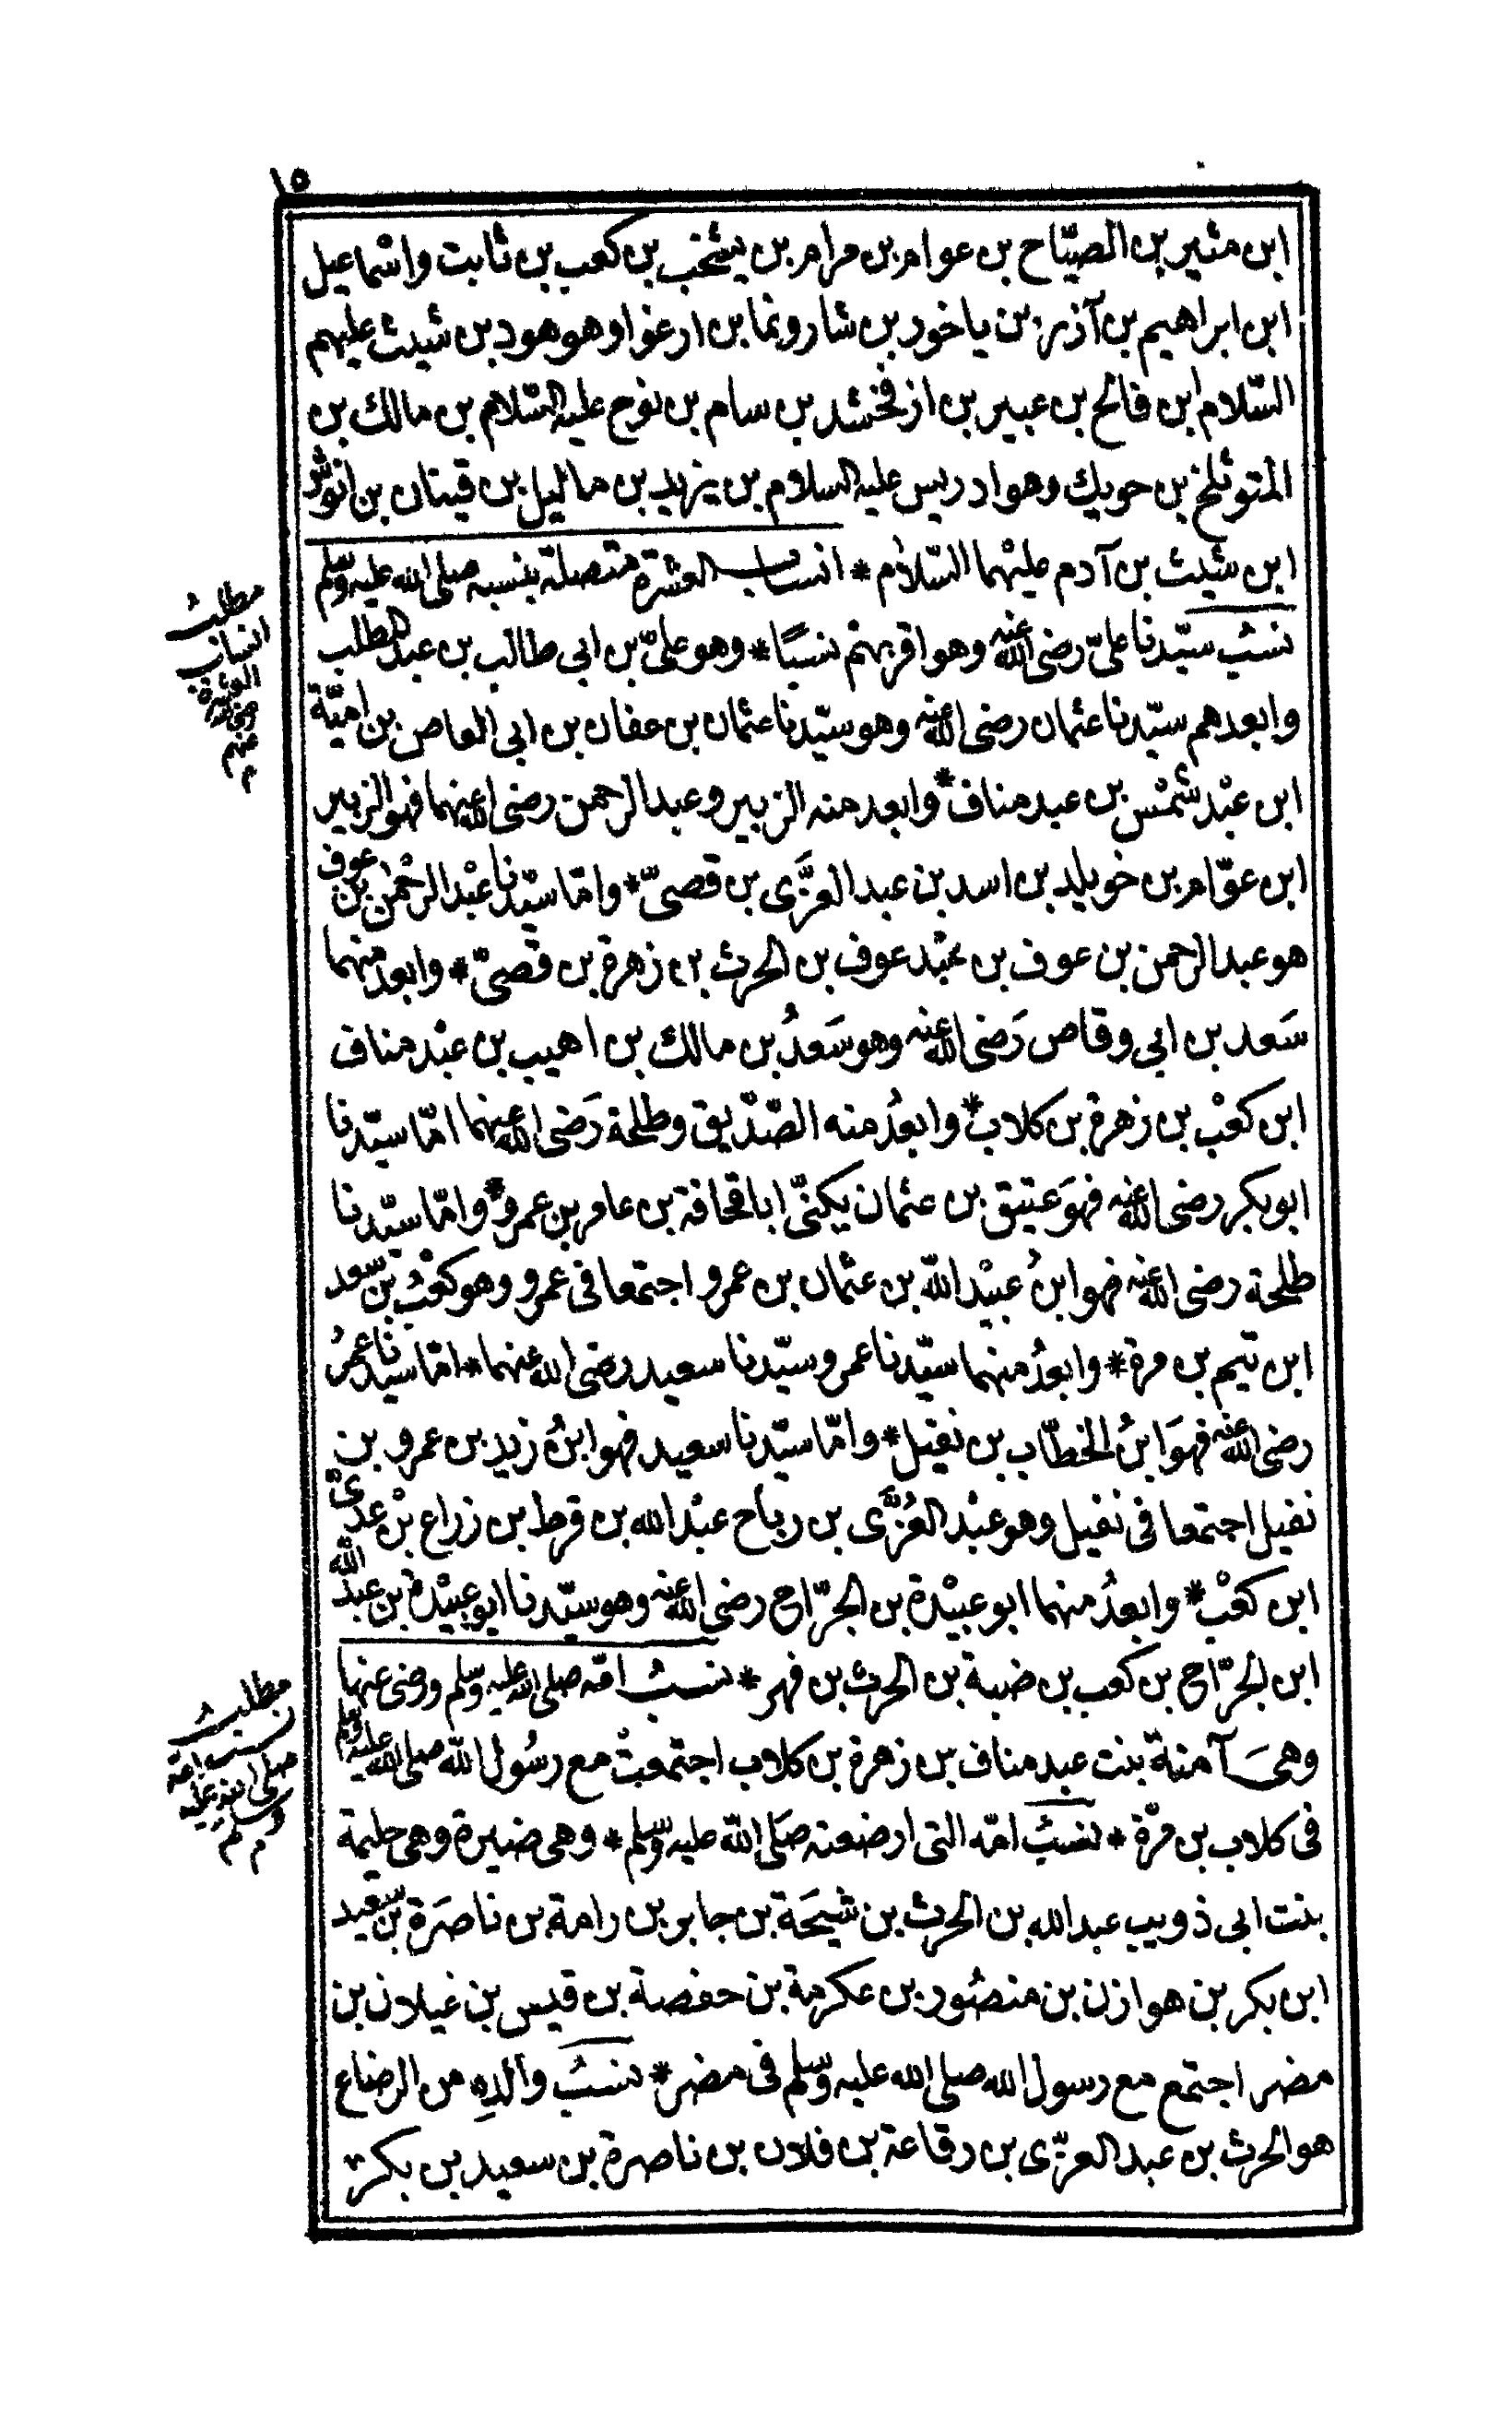 ١٥
ابن مثير بن الصيّاح بن عوام بن مرام بن يشخب بن كعب بن ثابت واسماعيل
ابن ابراهيم بن آذر بن ياخور بن شارونما بن ارغوا وهو هود بن شيث عليهم
السّلام ابن فالخ بن عبير بن ارفخشد بن سام بن نوح عليه السّلام بن مالك بن
المتوثلخ بن حويك وهو ادريس عليه السلام بن يزيد بن ماليل بن قينان بن انوش
ابن شيث بن آدم عليهما السّلام * انساب العشرة متصلة بنسبه صلى الله عليه وسلم
نسب سيّدنا علىّ رضى الله عنه وهو اقربهم نسبًا * وهو علىّ بن ابى طالب بن عبد المطلب
وابعدهم سيّدنا عثمان رضى الله عنه وهو سيّدنا عثمان بن عفان بن ابى العاص بن اميّة
ابن عبْد شمْس بن عبد مناف * وابعد منه الزبير وعبد الرحمن رضى الله عنهما فهو الزبير
ابن عوّام بن خويلد بن اسد بن عبد العزَّى بن قصىّ * وامّا سيّدنا عبْد الرحْمٰن بن عوف
هو عبد الرحمن بن عوف بن عبْد عوف بن الحرث بن زهرة بن قصىّ * وابعد منهما
سَعد بن ابى وقاص رَضى الله عنه وهو سَعدُ بن مالك بن اهيب بن عبْد مناف
ابن كعْب بن زهرة بن كلاب * وابعدُ منه الصّدّيق وطلحة رَضى الله عنهما امّا سيّدنا
ابو بكر رضى الله عنه فهوَ عتيق بن عثمان يكنّى ابا قحافة بن عامر بن عمرو * وامّا سيّدنا
طلحة رضى الله عنه فهو ابنُ عبيْد الله بن عثمان بن عمرو اجتمعا فى عمرو وهو كعْبُ بن سعد
ابن تيم بن مرة * وابعدُ منهما سيّدنا عمر وسيّدنا سعيد رضى الله عنهما * امّا سيدنا عمرُ
رضى الله عنه فهوَ ابنُ الخطّاب بن نفيل * وامّا سيّدنا سعيد فهو ابنُ زيد بن عمرو بن
نفيل اجتمعا فى نفيل وهو عبْد العُزَّى بن رباح عبْد الله بن قرط بن زراع بْن عدىّ
ابن كعْب * وابعدُ منهما ابو عبيْدة بن الجرّاح رضى الله عنه وهو سيّدنا ابو عبيْدة بن عبد الله
ابن الجرّاح بن كعب بن ضبة بن الحرث بن فهر * نسبُ امّه صلى الله عليه وسلم ورضى عنها
وهىَ آمنة بنت عبد مناف بن زهرة بن كلاب اجتمعتْ مع رسُول الله صلى الله عليه وسلم
فى كلاب بن مرّة * نسبُ امّه التى ارضعته صَلى الله عليه وسلم * وهى ضيرة وهى حليمة
بنت ابى ذويب عبد الله بن الحرث بن شيحَة بن جابر بن رامة بن ناصَرَة بن سعيد
ابن بكر بن هوازن بن منصُور بن عكرمة بن حفصة بن قيس بن غيلان بن
مضر اجتمع مع رسول الله صلى الله عليه وسلم فى مضر * نسبُ والدِه من الرضاع
هو الحرث بن عبد العزّى بن رقاعة بن فلان بن ناصرة بن سعيد بن بكر
مطلبُ
انساب
العشرة
رضى الله
عنهم
مطلبُ
نسب امّه
صلى الله عليه
وسلم